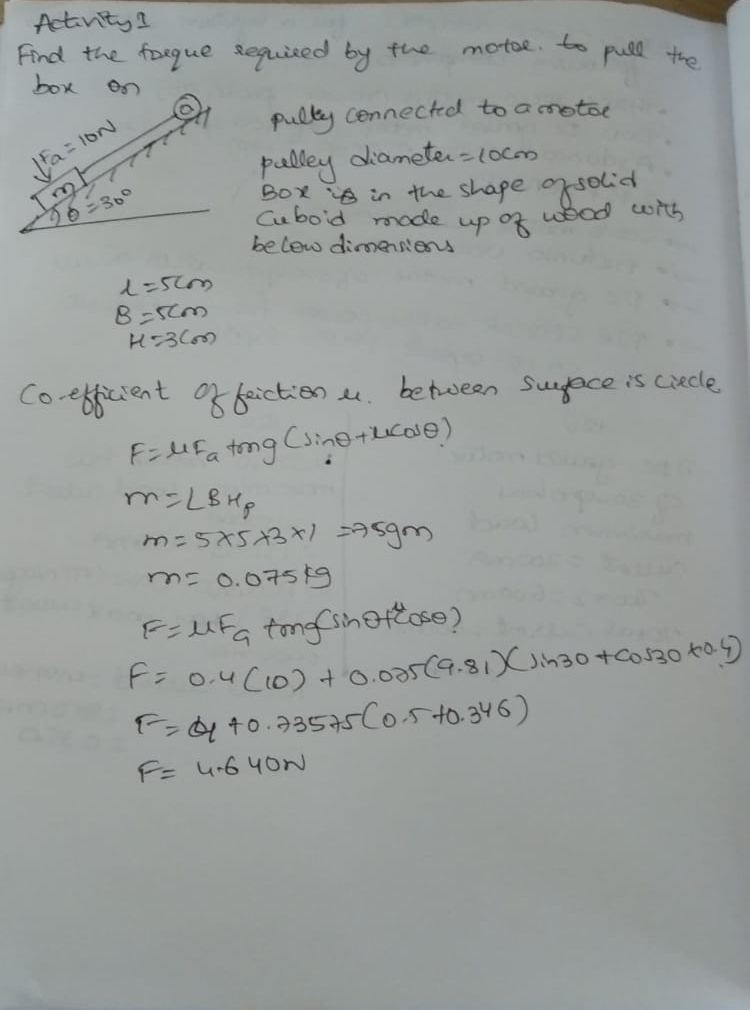 Activity 1
Find the torque required by the motor. to pull the
box on
Fa=10N
m
θ=30°
pulley connected to a motor
pulley diameter=10cm
Box is in the shape of solid
Cuboid made up of wood with
below dimensions
L=5cm
B=5cm
H=3cm
Co-efficient of friction μ. between surface is circle
F=μFa + mg(sinθ+μcosθ)
m=LBHρ
m=5×5×3×1 =75gm
m=0.075kg
F=μFa + mg(sinθ+μcosθ)
F= 0.4(10) + 0.075(9.81)(sin30+cos30×0.4)
F= 4+0.73575(0.5+0.346)
F= 4.640N